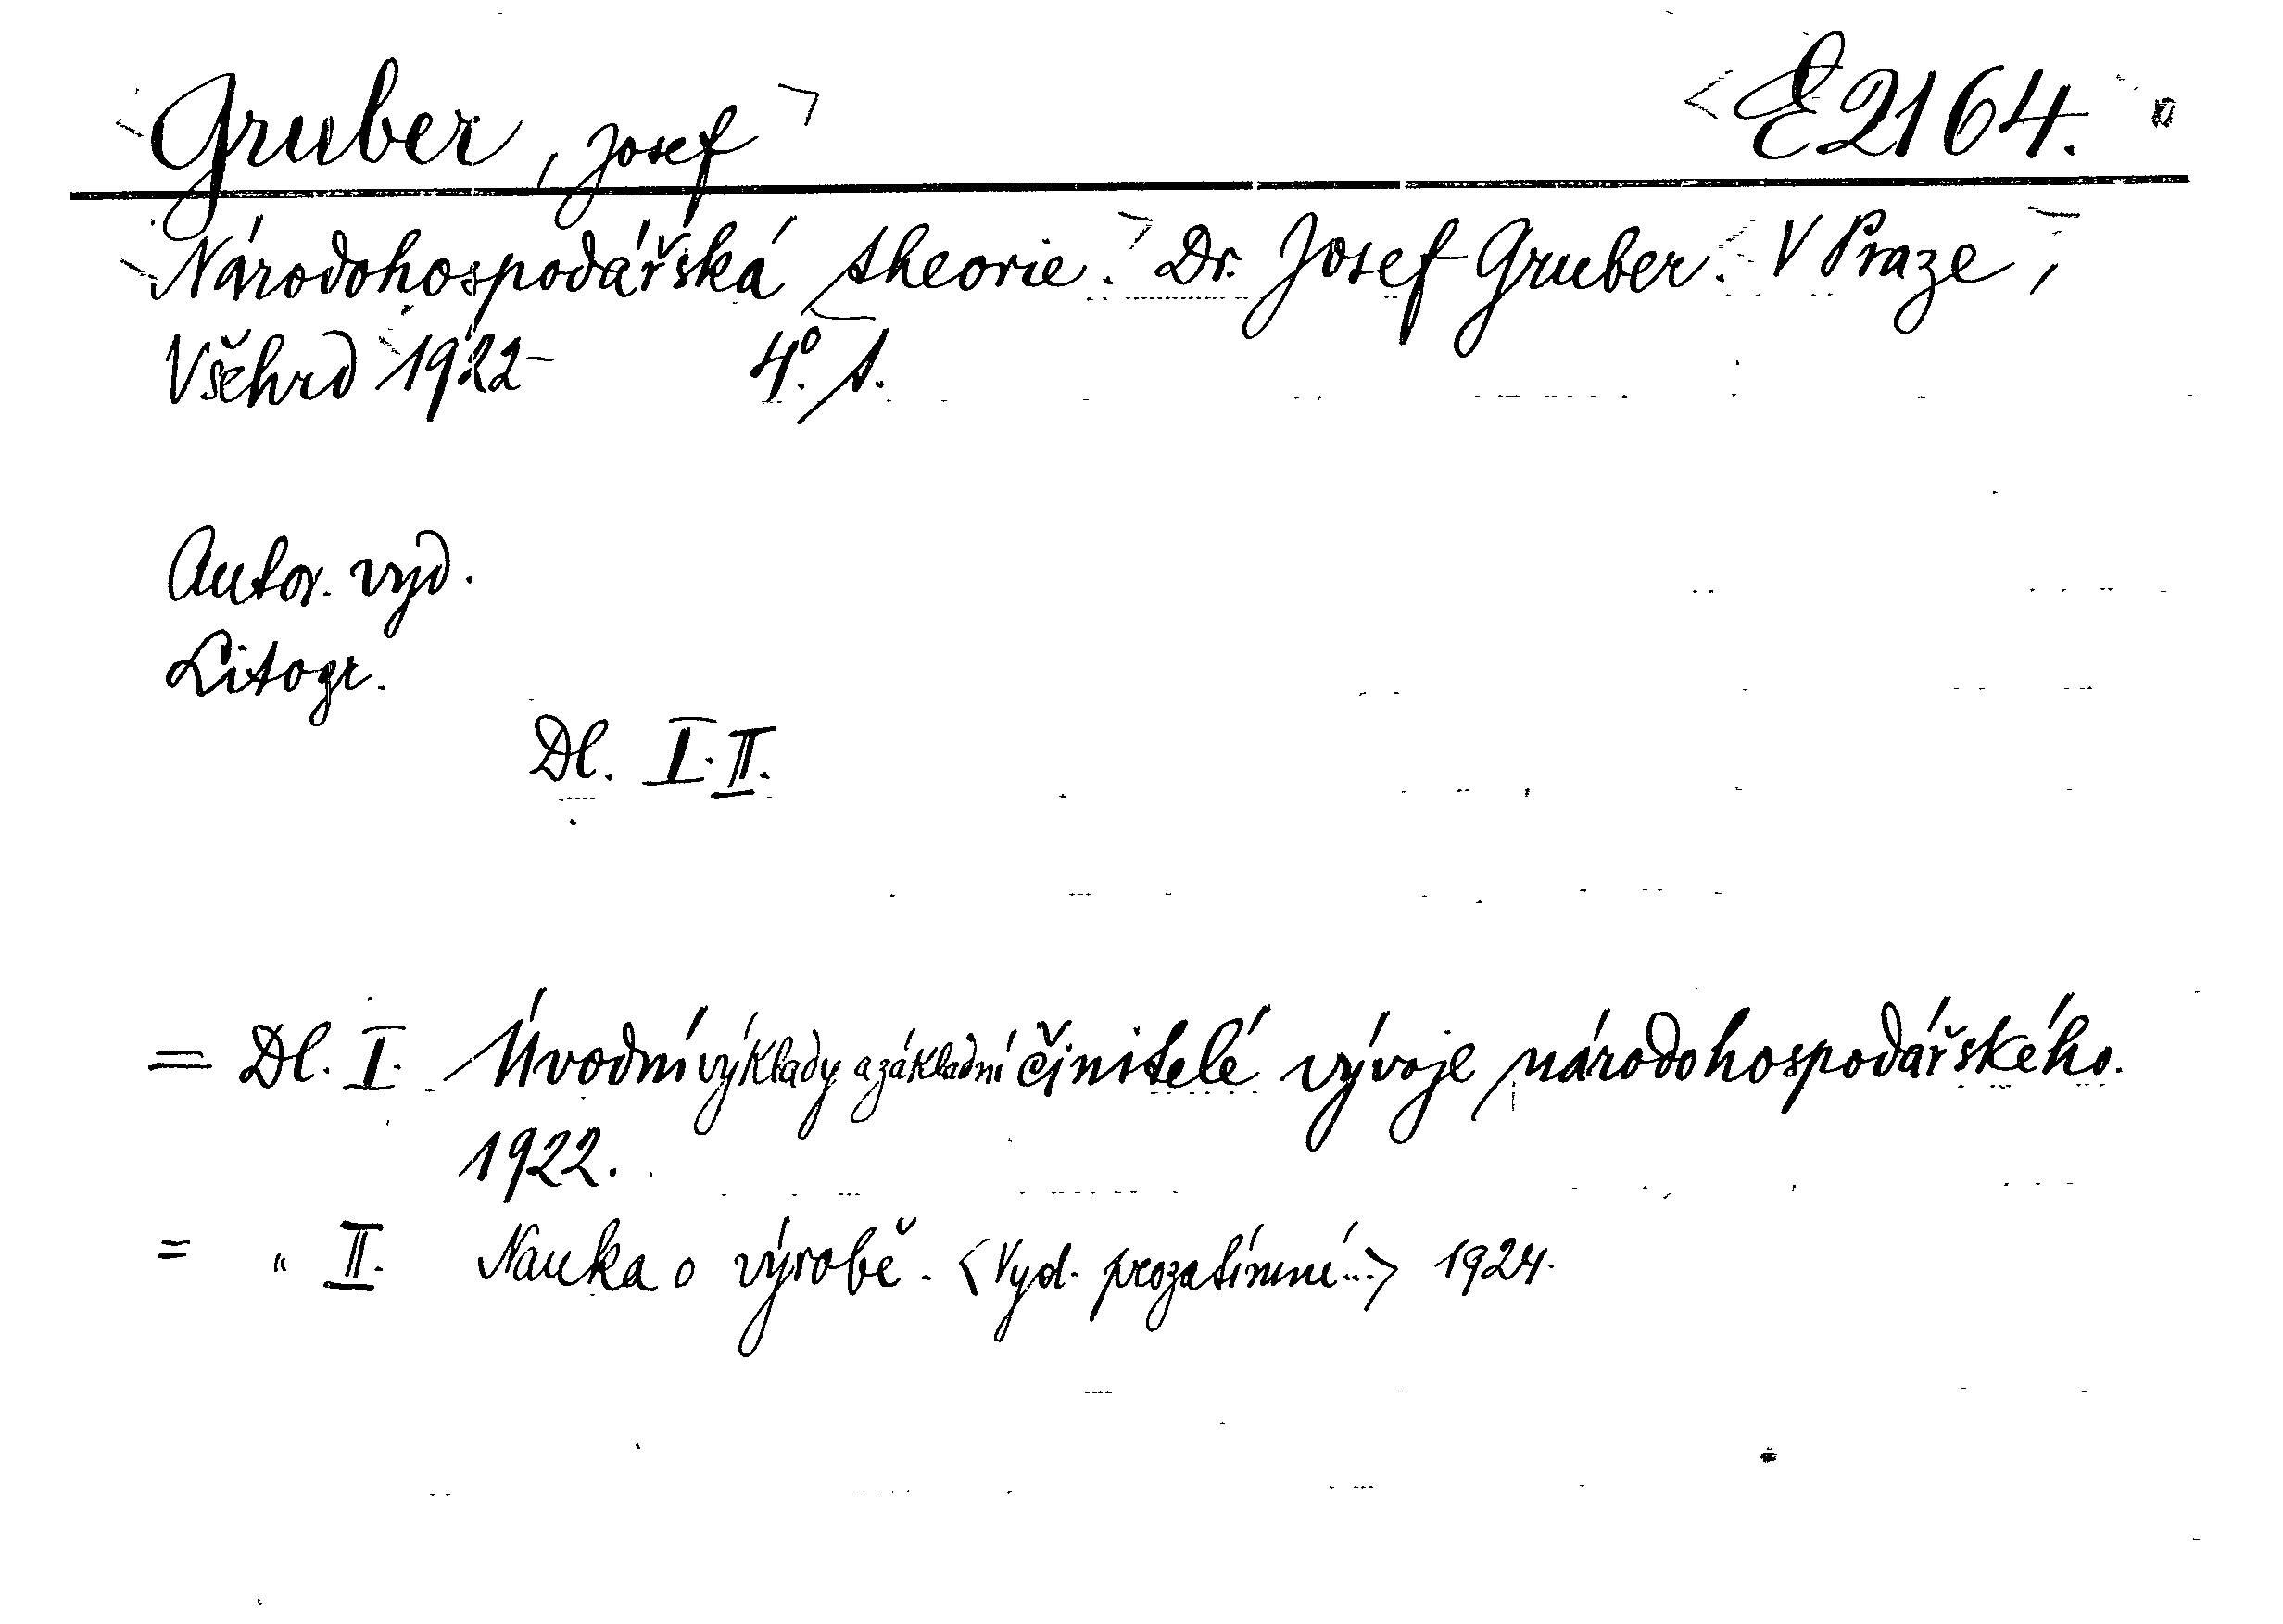 Gruber, Josef E 2164.
Národohospodářská theorie. Dr. Josef Gruber. V Praze,
Všehrd 1922- 4º. s.
Autor. vyd.
Litogr.
Dl. I. II.
= Dl. I. Úvodní výklady a základní činitelé vývoje národohospodářského.
1922.
= „ II. Nauka o výrobě. <Vyd. prozatímní...> 1924.